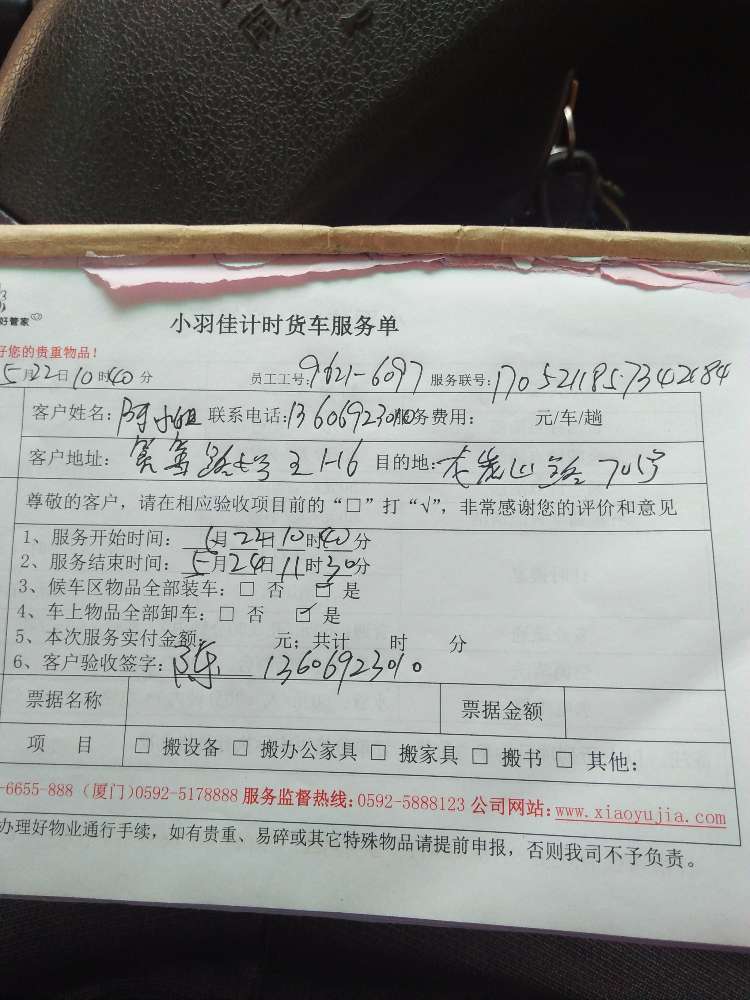 好管家
小羽佳计时货车服务单
好您的贵重物品!
5月22日10时40分 员工工号:9621-6097 服务联号:
客户姓名: 小姐 联系电话:13606923010 服务费用: 元/车/趟
客户地址: 筼筜路 1-16 目的地: 山路 701号
尊敬的客户，请在相应验收项目前的“□”打“√”，非常感谢您的评价和意见
1、服务开始时间: 月 日10时40分
2、服务结束时间: 5月 日11时30分
3、候车区物品全部装车: □ 否 ☑ 是
4、车上物品全部卸车: □ 否 ☑ 是
5、本次服务实付金额: 元; 共计 时 分
6、客户验收签字: 陈 13606923010
票据名称 票据金额
项 目 □ 搬设备 □ 搬办公家具 □ 搬家具 □ 搬书 □ 其他:
-6655-888 (厦门)0592-5178888 服务监督热线:0592-5888123 公司网站:www.xiaoyujia.com
办理好物业通行手续，如有贵重、易碎或其它特殊物品请提前申报，否则我司不予负责。